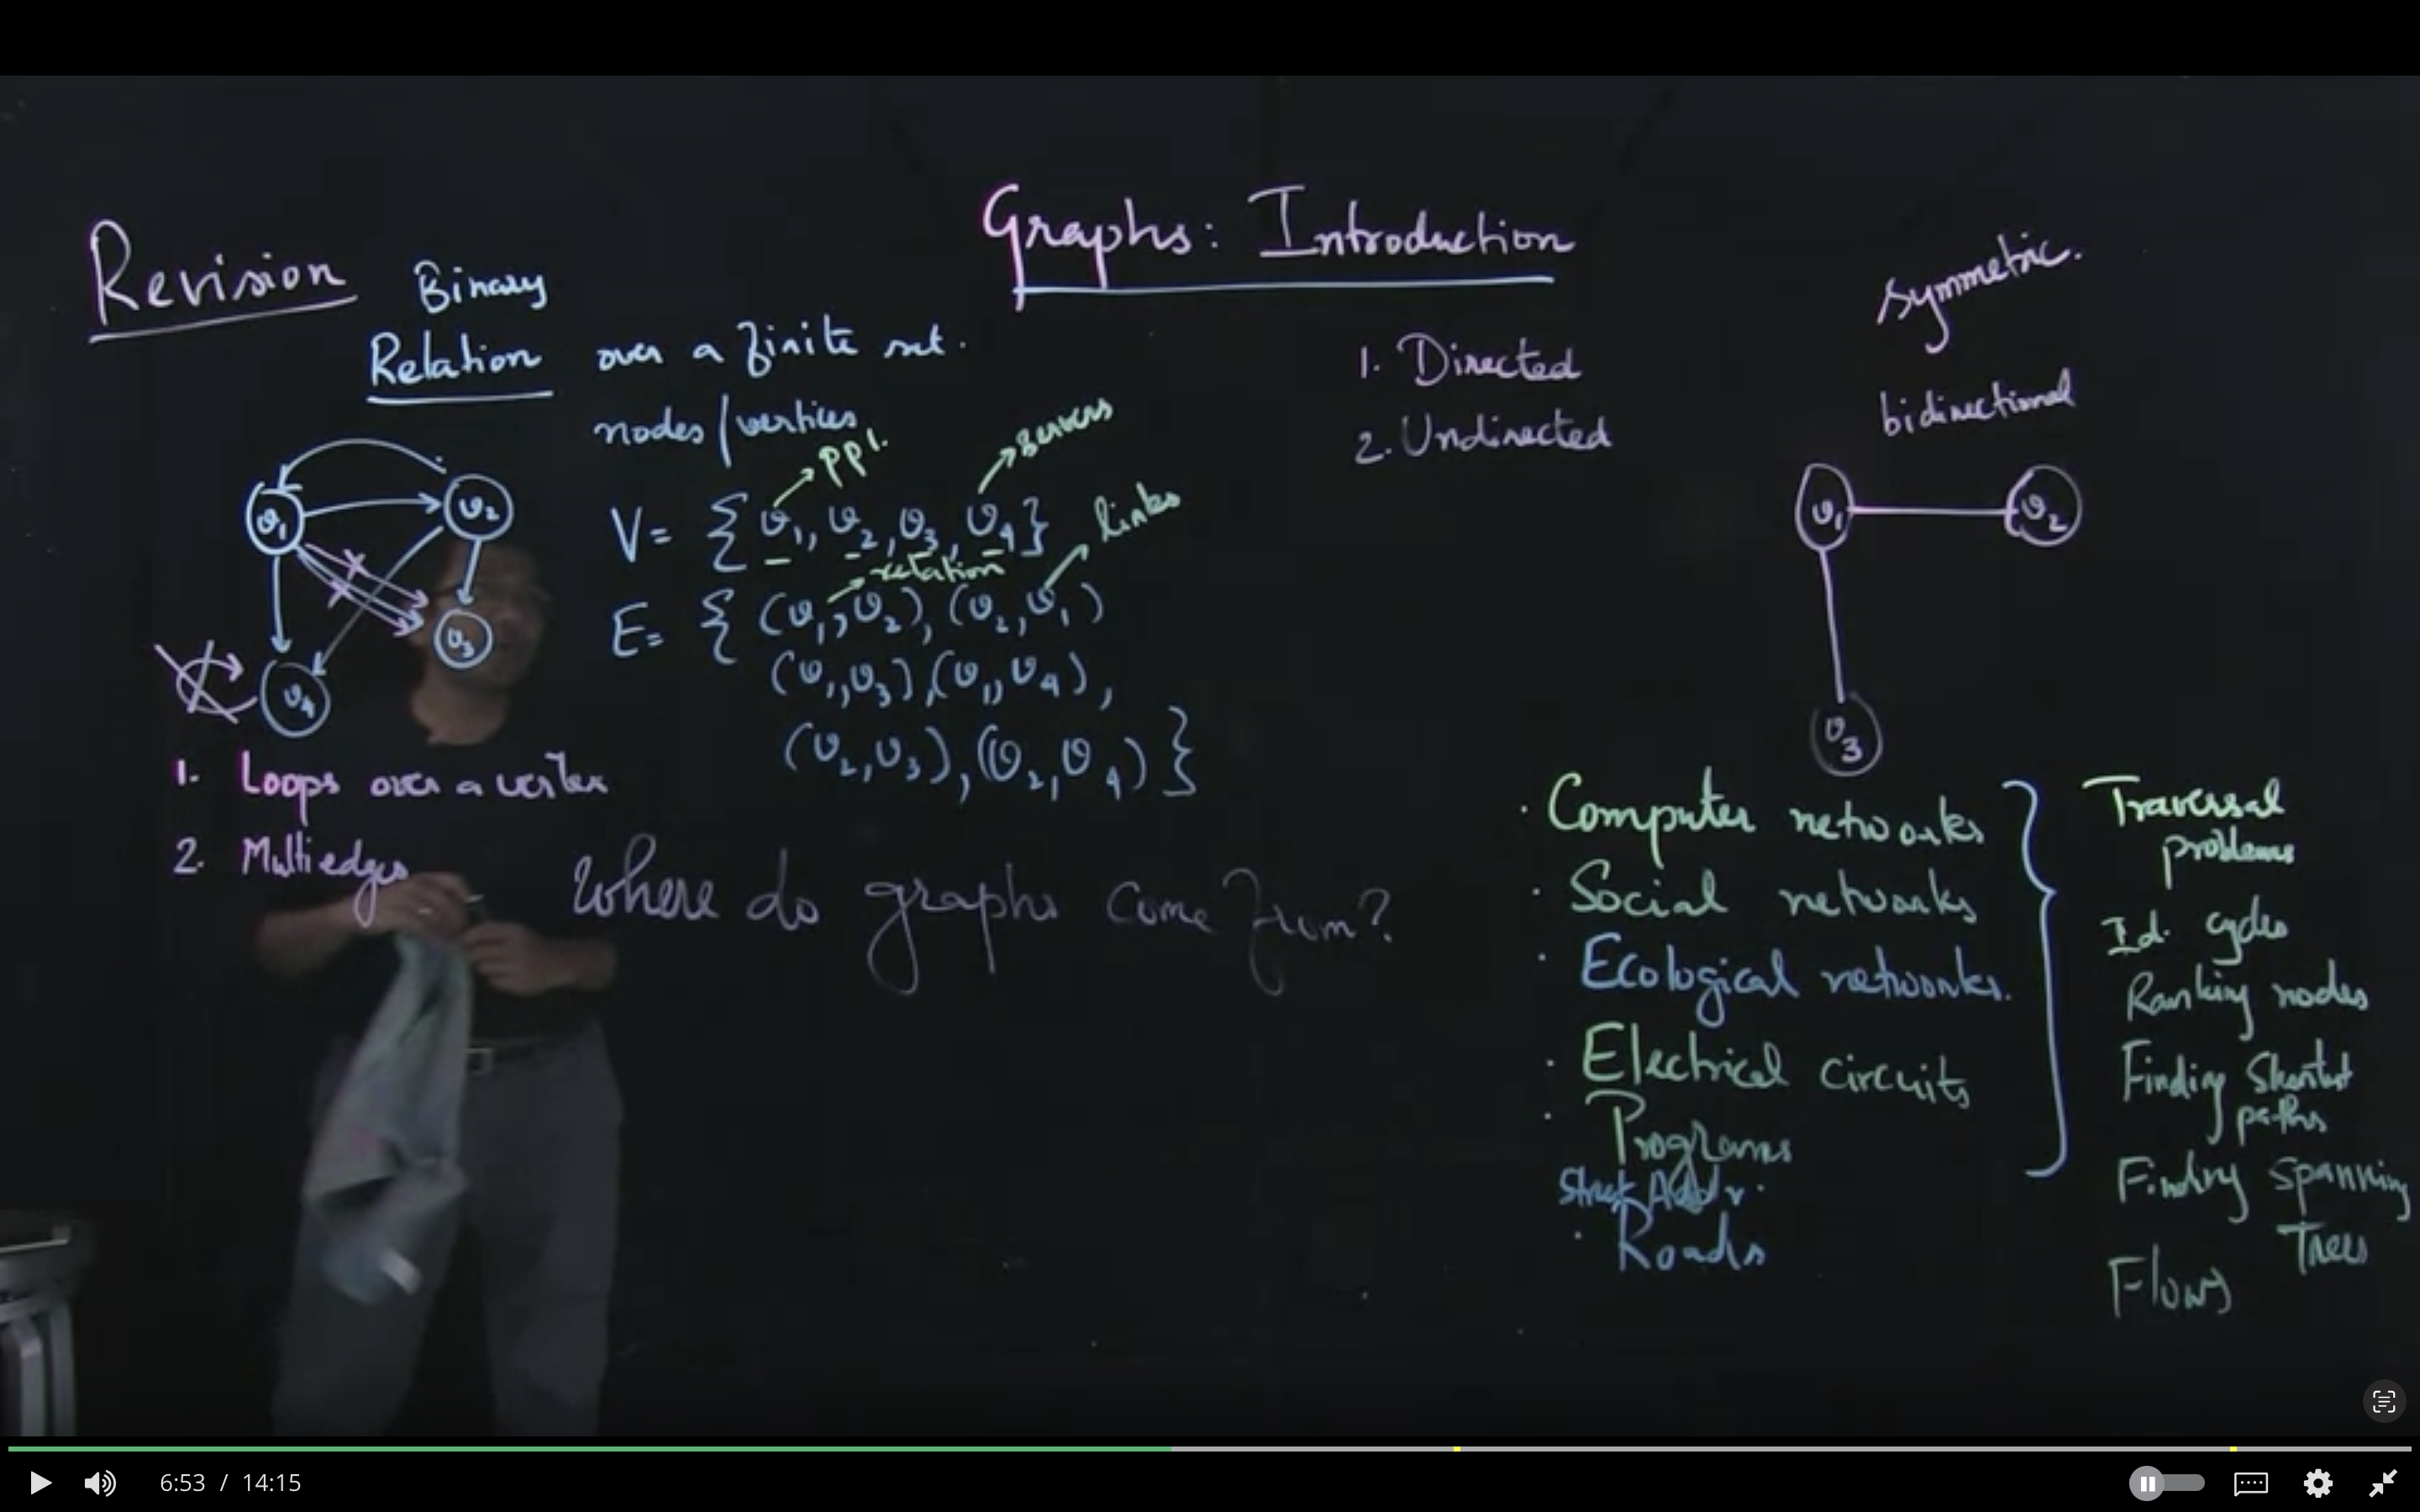 Graphs: Introduction
Revision
Binary
Relation over a finite set.
nodes/vertices
ppl.
servers
V = {v1, v2, v3, v4}
links
relation
E = {(v1, v2), (v2, v1)
(v1, v3), (v1, v4),
(v2, v3), (v2, v4)}
v1
v2
v3
v4
1. Loops over a vertex
2. Multiedges
Where do graphs come from?
1. Directed
2. Undirected
symmetric.
bidirectional
v1
v2
v3
· Computer networks
· Social networks
· Ecological networks.
· Electrical circuits
· Programs
Street Addr.
· Roads
Traversal
problems
Id. cycles
Ranking nodes
Finding Shortest
paths
Finding spanning
Trees
Flows
6:53 / 14:15